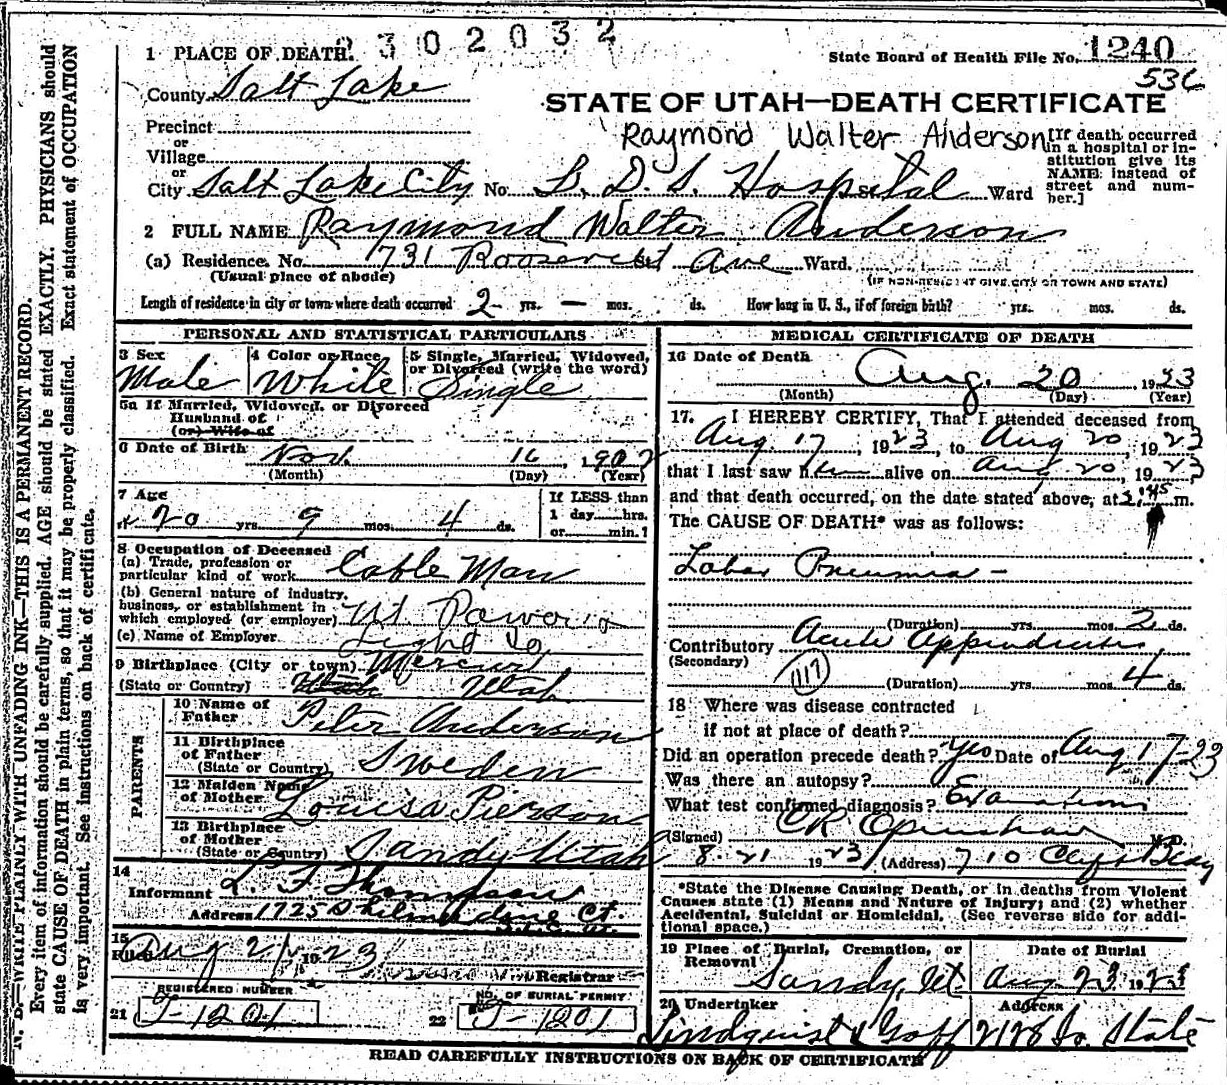 2 3 0 2 0 3 2
1 PLACE OF DEATH.
State Board of Health File No. 1240
536
County Salt Lake
STATE OF UTAH—DEATH CERTIFICATE
Precinct
or
Village
or
Raymond Walter Anderson
[If death occurred in a hospital or institution give its NAME instead of street and number.]
City Salt Lake City No. L. D. S. Hospital Ward
2 FULL NAME Raymond Walter Anderson
(a) Residence. No. 1731 Roosevelt Ave Ward.
(Usual place of abode)
(IF NON-RESIDENT GIVE CITY OR TOWN AND STATE)
Length of residence in city or town where death occurred 2 yrs. — mos. ds. How long in U. S., if of foreign birth? yrs. mos. ds.
PERSONAL AND STATISTICAL PARTICULARS
3 Sex
Male
4 Color or Race
White
5 Single, Married, Widowed, or Divorced (write the word)
Single
5a If Married, Widowed, or Divorced
Husband of
(or) Wife of
6 Date of Birth Nov. 16, 1902
(Month) (Day) (Year)
7 Age
20 yrs. 9 mos. 4 ds.
If LESS than
1 day hrs.
or min.?
8 Occupation of Deceased
(a) Trade, profession or
particular kind of work Cable Man
(b) General nature of industry,
business, or establishment in
which employed (or employer) Ut. Power &
(c) Name of Employer Light Co
9 Birthplace (City or town) Mercur,
(State or Country) Utah Utah
PARENTS
10 Name of
Father Peter Anderson
11 Birthplace
of Father
(State or Country) Sweden
12 Maiden Name
of Mother Louisa Pierson
13 Birthplace
of Mother
(State or Country) Sandy Utah
14
Informant L. F. Thompson
Address 1725 Ct.
15
Filed Aug 21, 1923
Registrar
REGISTERED NUMBER
21 J-1201
NO. OF BURIAL PERMIT
22 J-1201
MEDICAL CERTIFICATE OF DEATH
16 Date of Death
Aug. 20, 1923
(Month) (Day) (Year)
17. I HEREBY CERTIFY, That I attended deceased from
Aug. 17, 1923, to Aug 20, 1923
that I last saw him alive on Aug 20, 1923,
and that death occurred, on the date stated above, at :45 m.
The CAUSE OF DEATH* was as follows:
Lobar Pneumonia —
(Duration) yrs. mos. 2 ds.
Contributory Acute Appendicitis
(Secondary)
117
(Duration) yrs. mos. 4 ds.
18 Where was disease contracted
if not at place of death?
Did an operation precede death? Yes Date of Aug 17-23
Was there an autopsy?
What test confirmed diagnosis? Examination
(Signed) CR Openshaw M.D.
8-21 1923 (Address) 710 Bldg
*State the Disease Causing Death, or in deaths from Violent
Causes state (1) Means and Nature of Injury; and (2) whether
Accidental, Suicidal or Homicidal. (See reverse side for additional space.)
19 Place of Burial, Cremation, or
Removal
Sandy, Ut.
Date of Burial
Aug 23 1923
20 Undertaker
Lindquist & Goff
Address
2128 So. State
READ CAREFULLY INSTRUCTIONS ON BACK OF CERTIFICATE
N. B.—WRITE PLAINLY WITH UNFADING INK—THIS IS A PERMANENT RECORD.
Every item of information should be carefully supplied. AGE should be stated EXACTLY. PHYSICIANS should
state CAUSE OF DEATH in plain terms, so that it may be properly classified. Exact statement of OCCUPATION
is very important. See instructions on back of certificate.